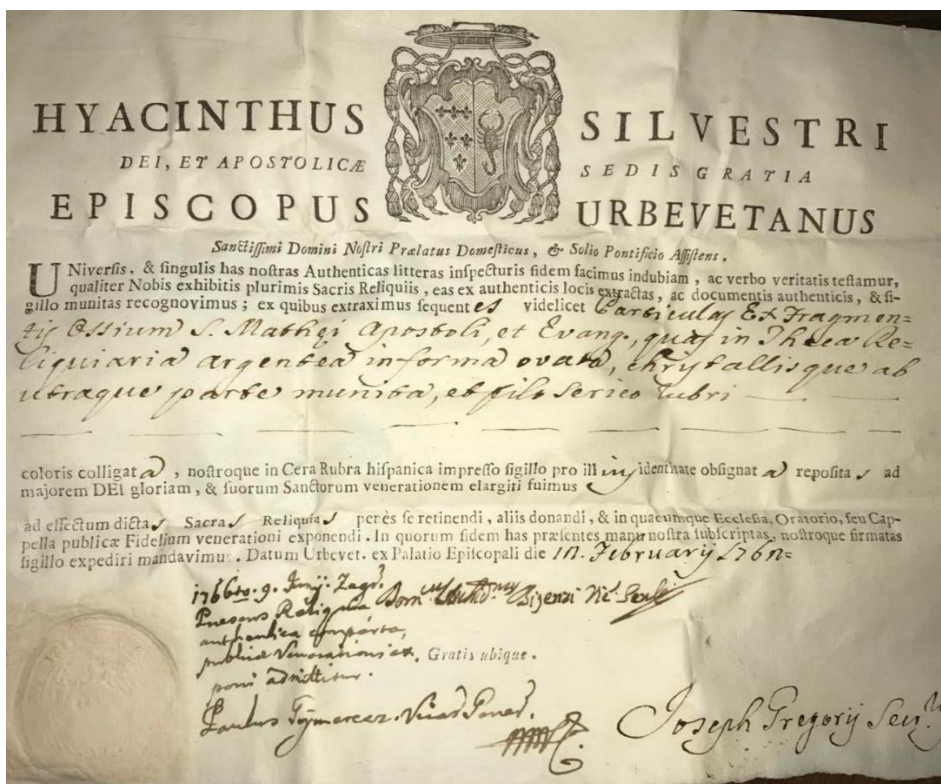 HYACINTHUS SILVESTRI
DEI, ET APOSTOLICÆ SEDIS GRATIA
EPISCOPUS URBEVETANUS
Sanctiſſimi Domini Noſtri Prælatus Domeſticus, & Solio Pontificio Aſſiſtens.
UNiverſis, & ſingulis has noſtras Authenticas litteras inſpecturis fidem facimus indubiam, ac verbo veritatis teſtamur,
qualiter Nobis exhibitis plurimis Sacris Reliquiis, eas ex authenticis locis extractas, ac documentis authenticis, & ſi-
gillo munitas recognovimus; ex quibus extraximus ſequentes videlicet Particulas Ex Fragmen=
tis Ossium S. Mathęi Apostoli, et Evang., quas in Theca Re=
liquiaria argentea in forma ovata, chrystallisque ab
utraque parte munita, et filo serico rubri
coloris colligata, noſtroque in Cera Rubra hiſpanica impreſſo ſigillo pro ill identitate obſignata repoſitas ad
majorem DEI gloriam, & ſuorum Sanctorum venerationem elargiri fuimus
ad effectum dictas Sacras Reliquias penès ſe retinendi, aliis donandi, & in quacumque Eccleſia, Oratorio, ſeu Cap-
pella publicæ Fidelium venerationi exponendi. In quorum fidem has præſentes manu noſtra ſubſcriptas, noſtroque firmatas
ſigillo expediri mandavimus. Datum Urbevet. ex Palatio Epiſcopali die February
1766to. 9. Junij. Zagr.
Praesens Reliquia
authentica comperta,
publicæ Venerationi ex
poni admittitur. Gratis ubique.
Paulus Vicar Gener.
Joseph Gregorij